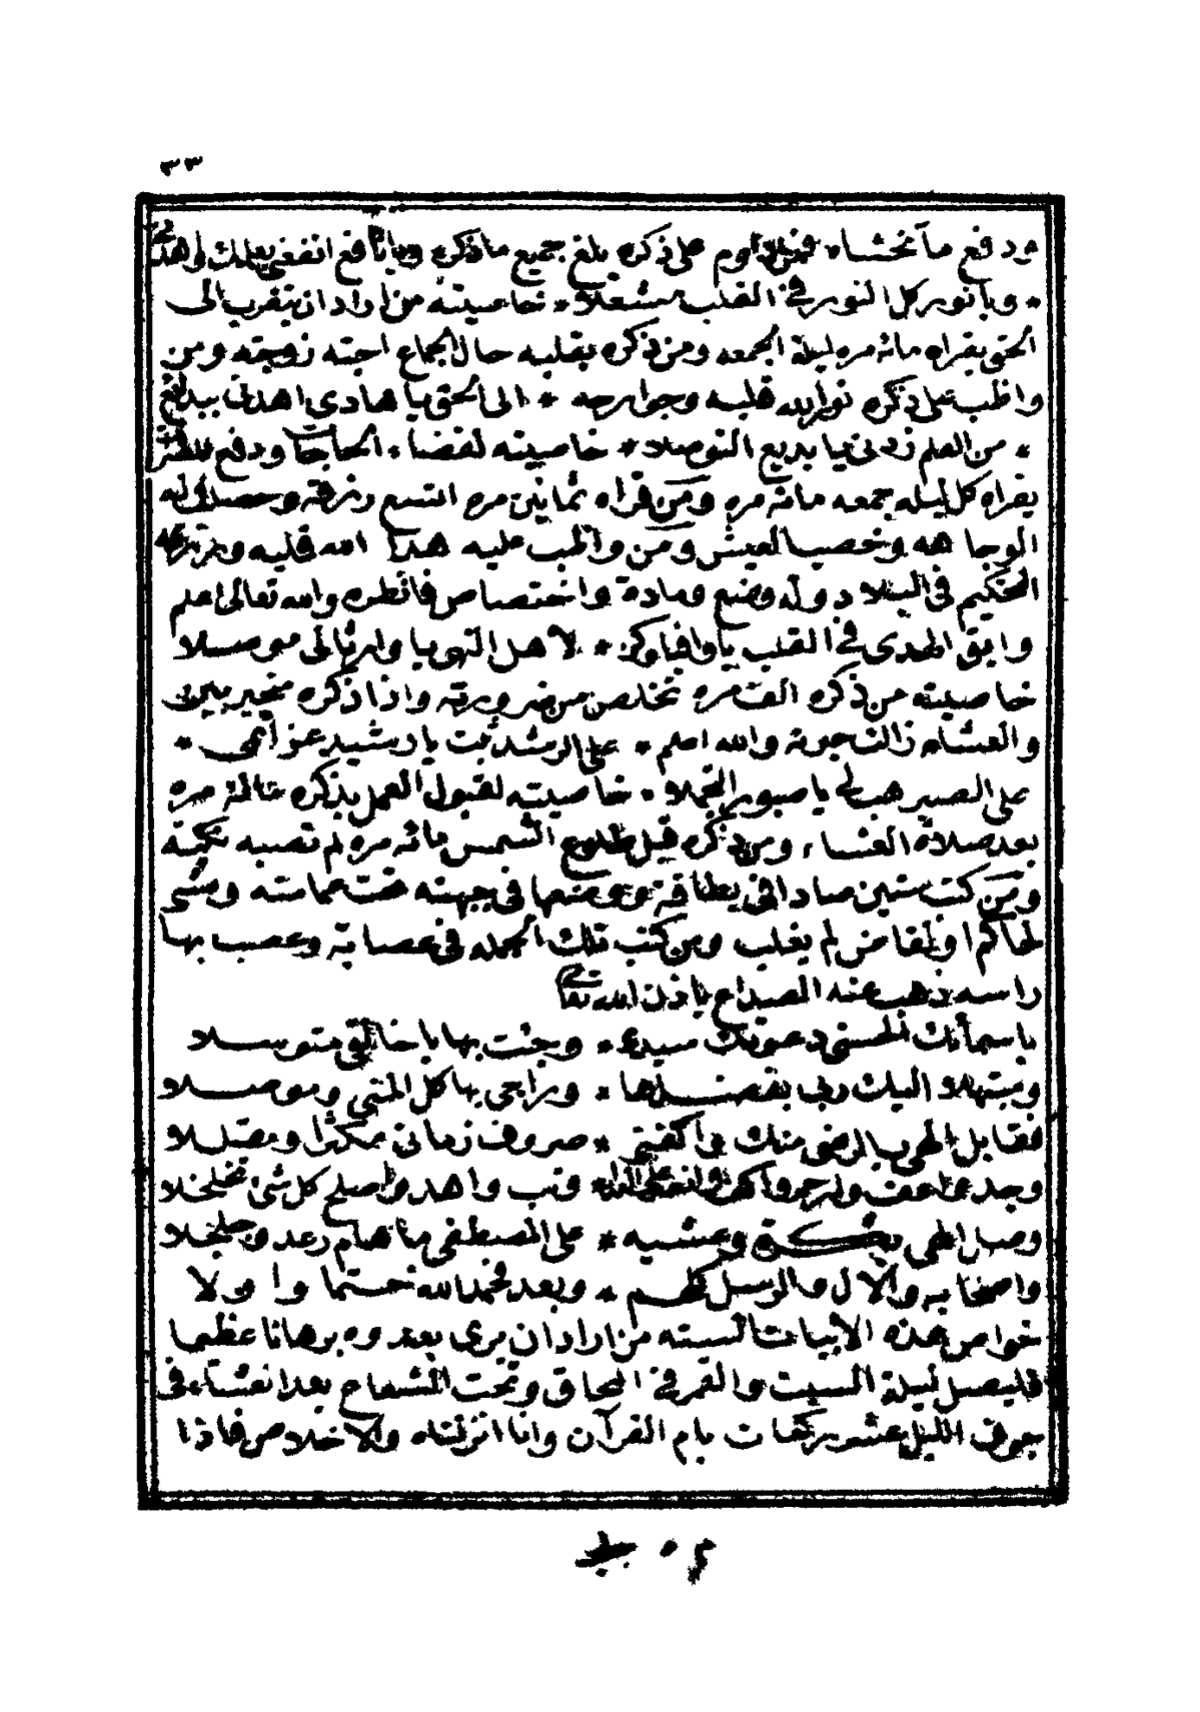 ٣٣
ودفع ما تخشاه فمن داوم على ذكره بلغ جميع ما ذكره ويا نافع انفعني بعلمك واهدني
* ويا نور كل النور في القلب مشعلا * خاصيته من اراد ان يتقرب الى
الحق يقراه مائه مره ليلة الجمعه ومن ذكره بقلبه حال الجماع احبته زوجته ومن
واظب على ذكره نور الله قلبه وجوارحه * الى الحق يا هادي اهدني ببدائع
* من العلم زدني يا بديع التوصلا * خاصيته لقضاء الحاجات ودفع
يقراه كل ليله جمعه مائه مره ومن قراه ثمانين مره اتسع رزقه وحصل له
الوجاهه وخصب العيش ومن واظب عليه هدا الله قلبه
الحكيم في البلاد وله وضع ومادة واختصاص فانظره والله تعالى اعلم
وابق الهدى في القلب يا وافيا وكن * لاهل التهويا وارثا لي موصلا
خاصيته من ذكره الف مره تخلص من ضرورته واذا ذكره متحير بين
والعشاء زالت حيرته والله اعلم * على الرشد ثبت يا رشيد عزائمي *
على الصبر هب لي يا صبور التجملا * خاصيته لقبول العمل يذكره مائة مره
بعد صلاة العشاء ومن ذكره قبل طلوع الشمس مائه مره لم تصبه نكبته
ومن كتب ستين صادا في بطاقة ووضعها في جبهته تحت عمامته ومشى
لحاكم او لقاض لم يغلب ومن كتب تلك الجمله في عصابة وعصب بها
راسه ذهب عنه الصداع باذن الله تعالى
باسمائك الحسنى دعوتك سيدي * وجئت بها يا خالقي متوسلا
ومبتهلا اليك ربي بفضلها * وراجي بها كل المنى وموصلا
فقابل الهي بالرضى منك واكفني * صروف زماني مكثرا ومقللا
وجد واعف وارحم * وتب واهد واصلح كل شئ تخلخلا
وصل الهي بكرة وعشيه * على المصطفى ما هام رعد وجلجلا
واصحابه والآل والرسل كلهم * وبعد فحمد الله ختما واولا
خواص هذه الابيات الستة من اراد ان يرى بعدوه برهانا عظيما
فليصل ليلة السبت والقمر في المحاق وتحت الشعاع بعد العشاء في
جوف الليل عشر ركعات بام القرآن وانا انزلناه والاخلاص فاذا